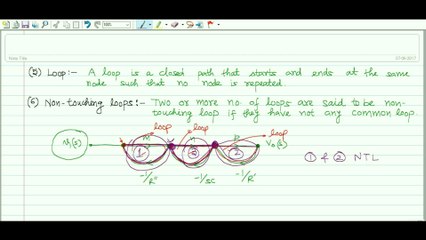 Note Title
(5) Loop:- A loop is a closed path that starts and ends at the same
node such that no node is repeated
(6) Non-touching loops:- Two or more no. of loops are said to be non-
touching loop if they have not any common loop.
loop loop loop
Vi(s) 1 3 2 Vo(s)
① & ② NTL
-1/R" -1/SC -1/R'